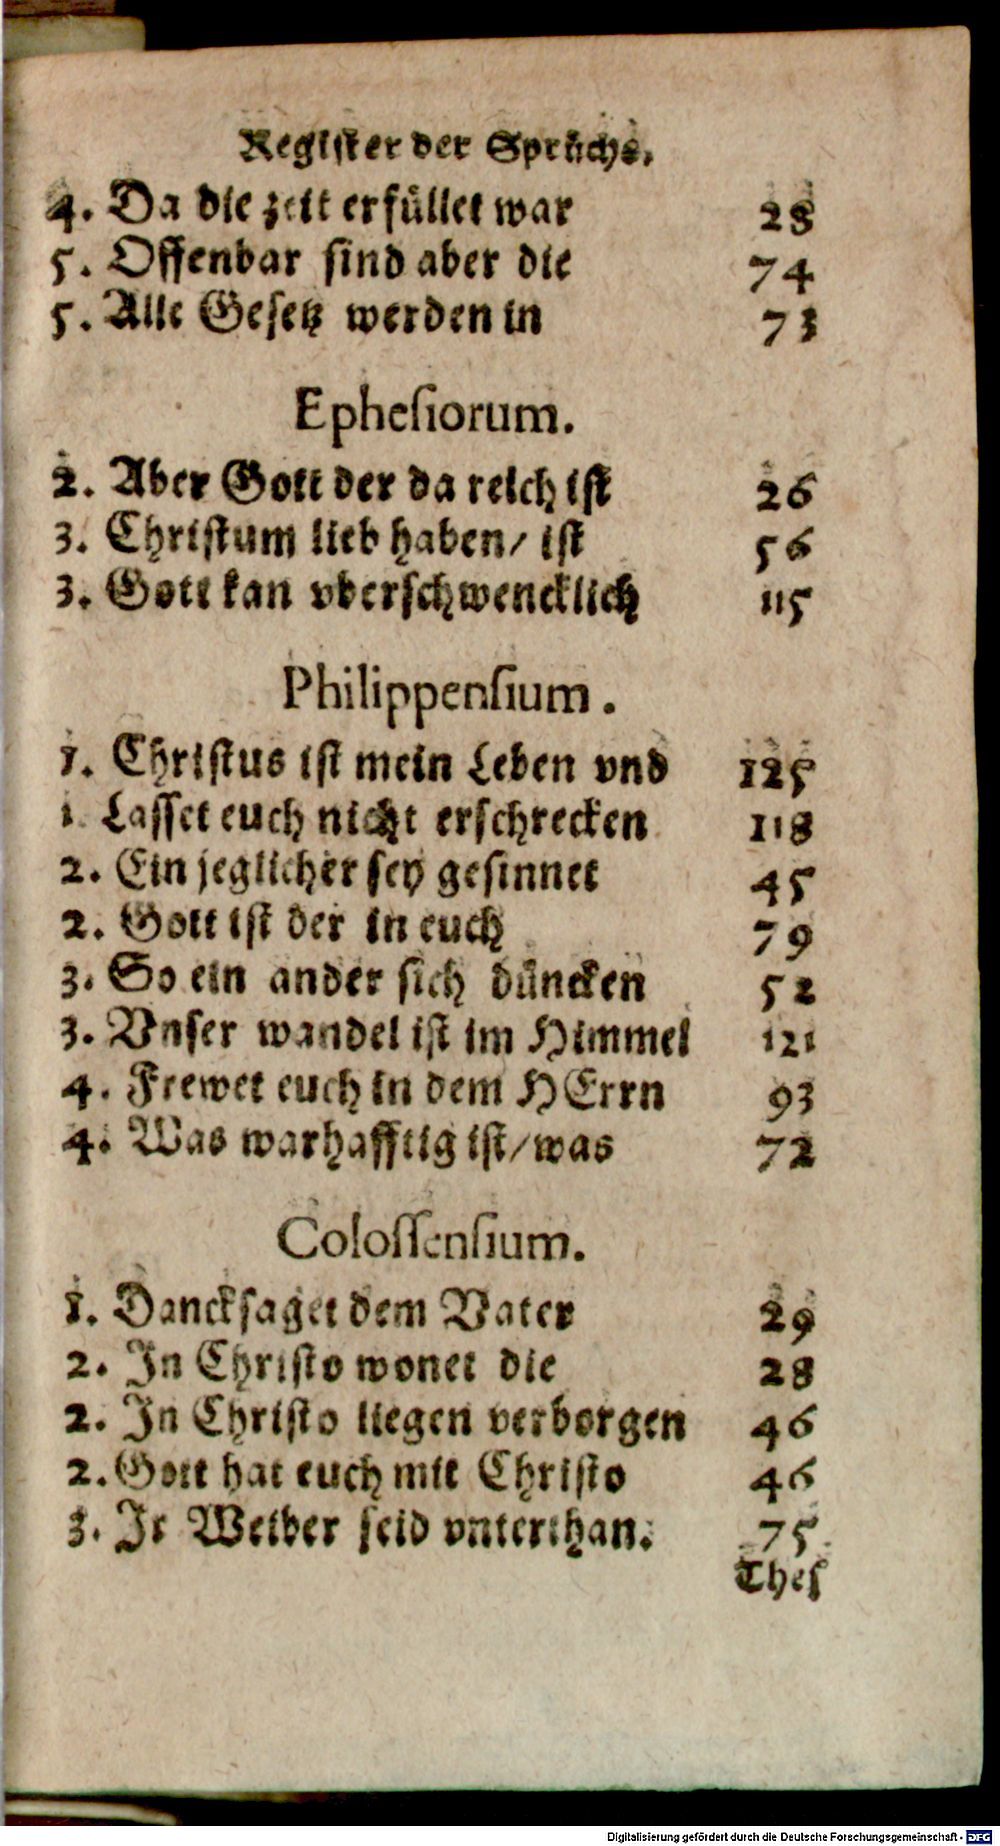 Register der Sprüche.
4. Da die zeit erfüllet war 28
5. Offenbar sind aber die 74
5. Alle Gesetz werden in 73
Ephesiorum.
2. Aber Gott der da reich ist 26
3. Christum lieb haben/ ist 56
3. Gott kan vberschwencklich 115
Philippensium.
1. Christus ist mein Leben vnd 125
1. Lasset euch nicht erschrecken 118
2. Ein jeglicher sey gesinnet 45
2. Gott ist der in euch 79
3. So ein ander sich düncken 52
3. Vnser wandel ist im Himmel 121
4. Frewet euch in dem HErrn 93
4. Was warhafftig ist/was 72
Colossensium.
1. Dancksaget dem Vater 29
2. In Christo wonet die 28
2. In Christo liegen verborgen 46
2. Gott hat euch mit Christo 46
3. Ir Weiber seid vnterthan. 75
Thes
Digitalisierung gefördert durch die Deutsche Forschungsgemeinschaft - DFG